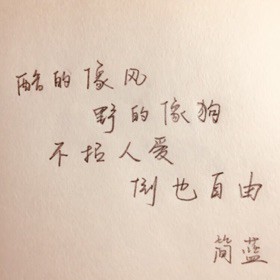 酷的像风
野的像狗
不招人爱
倒也自由
简蓝